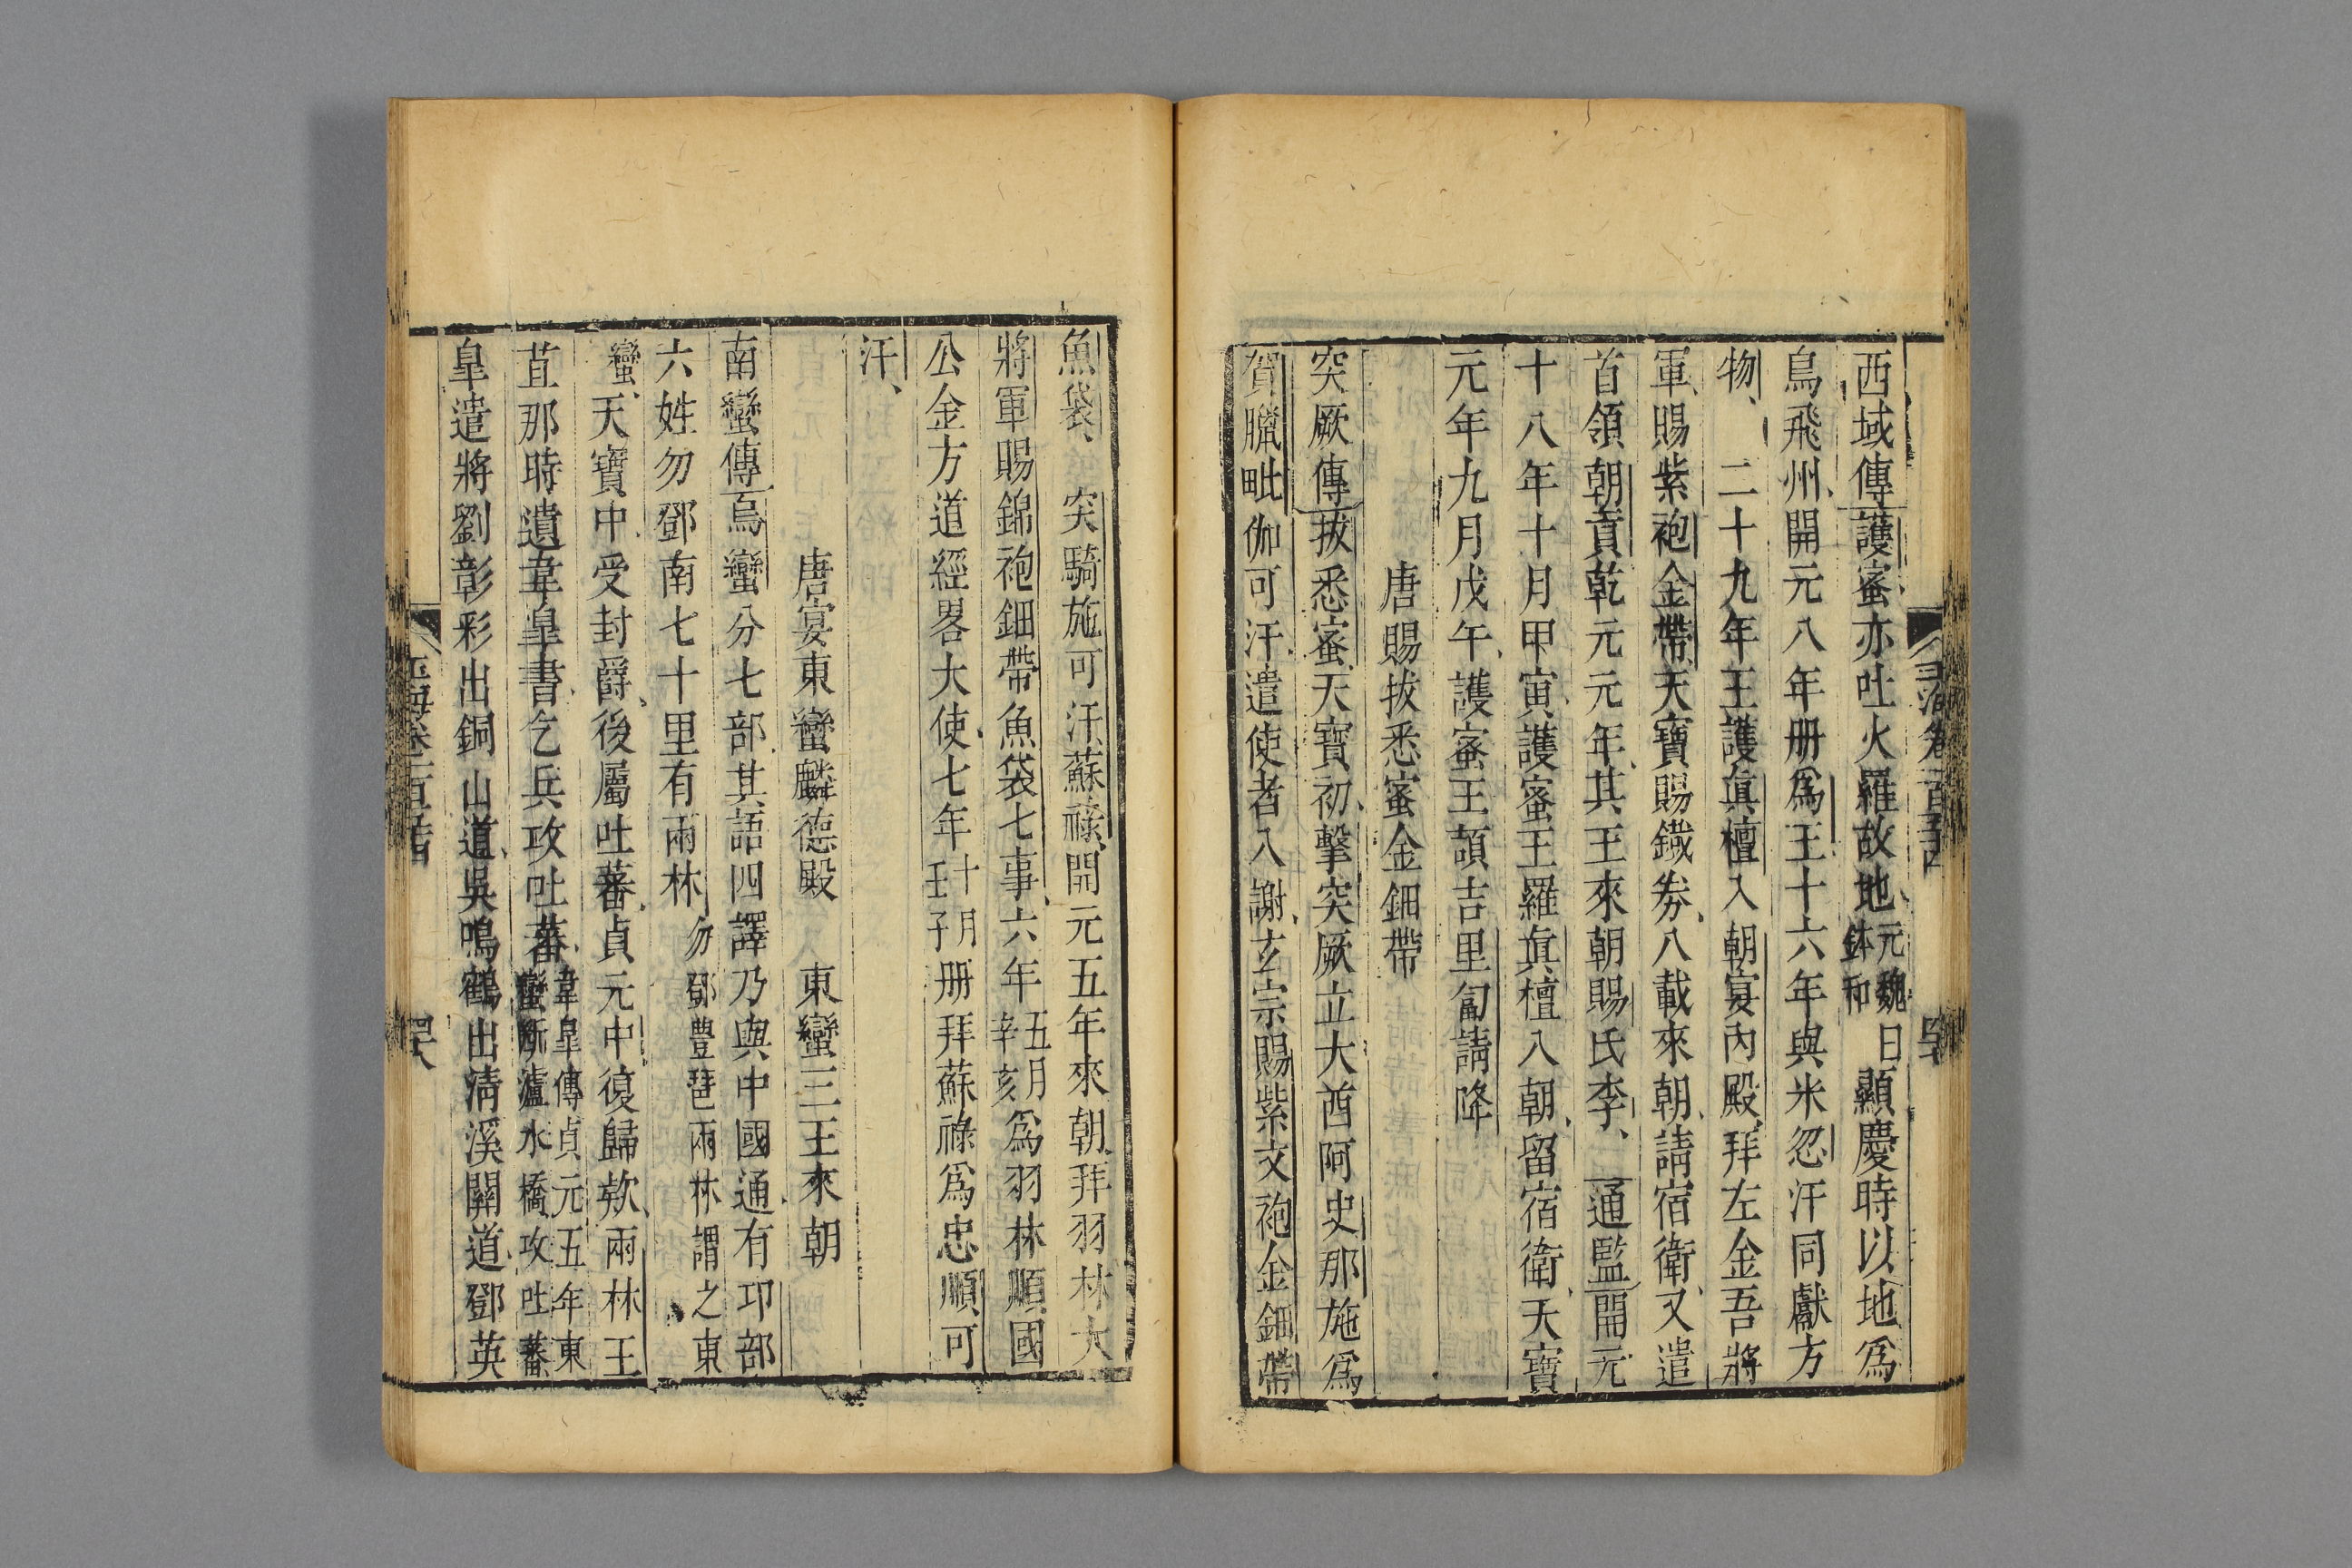 西域傳護蜜亦吐火羅故地元魏鉢和曰顯慶時以地爲
鳥飛州開元八年册爲王十六年與米忽汗同獻方
物、二十九年王護眞檀入朝宴內殿拜左金吾將
軍、賜紫袍金帶天寶賜鐡券、八載來朝、請宿衛、又遣
首領朝貢乾元元年、其王來朝賜氏李、通監開元
十八年十月甲寅護蜜王羅眞檀入朝、留宿衛、天寶
元年九月戊午、護蜜王頡吉里匐請降
唐賜拔悉蜜金鈿帶
突厥傳拔悉蜜天寶初、擊突厥立大酋阿史那施爲
賀臘毗伽可汗、遣使者入謝、玄宗賜紫文袍金鈿帶
魚袋、突騎施可汗蘇祿、開元五年來朝、拜羽林大
將軍賜錦袍鈿帶魚袋七事、六年五月辛亥爲羽林順國
公金方道經畧大使、七年十月壬子册拜蘇祿爲忠順可
汗、
唐宴東蠻麟德殿 東蠻三王來朝
南蠻傳烏蠻分七部、其語四譯乃與中國通、有邛部
六姓勿鄧南七十里有兩林勿鄧豐琶兩林謂之東
蠻、天寶中、受封爵、後屬吐蕃、貞元中、復歸欵、兩林王
苴那時遺韋皐書、乞兵攻吐蕃、韋皐傳貞元五年東蠻斷瀘水橋、攻吐蕃
皐遣將劉彰彩出銅山道、吳鳴鶴出淸溪關道、鄧英